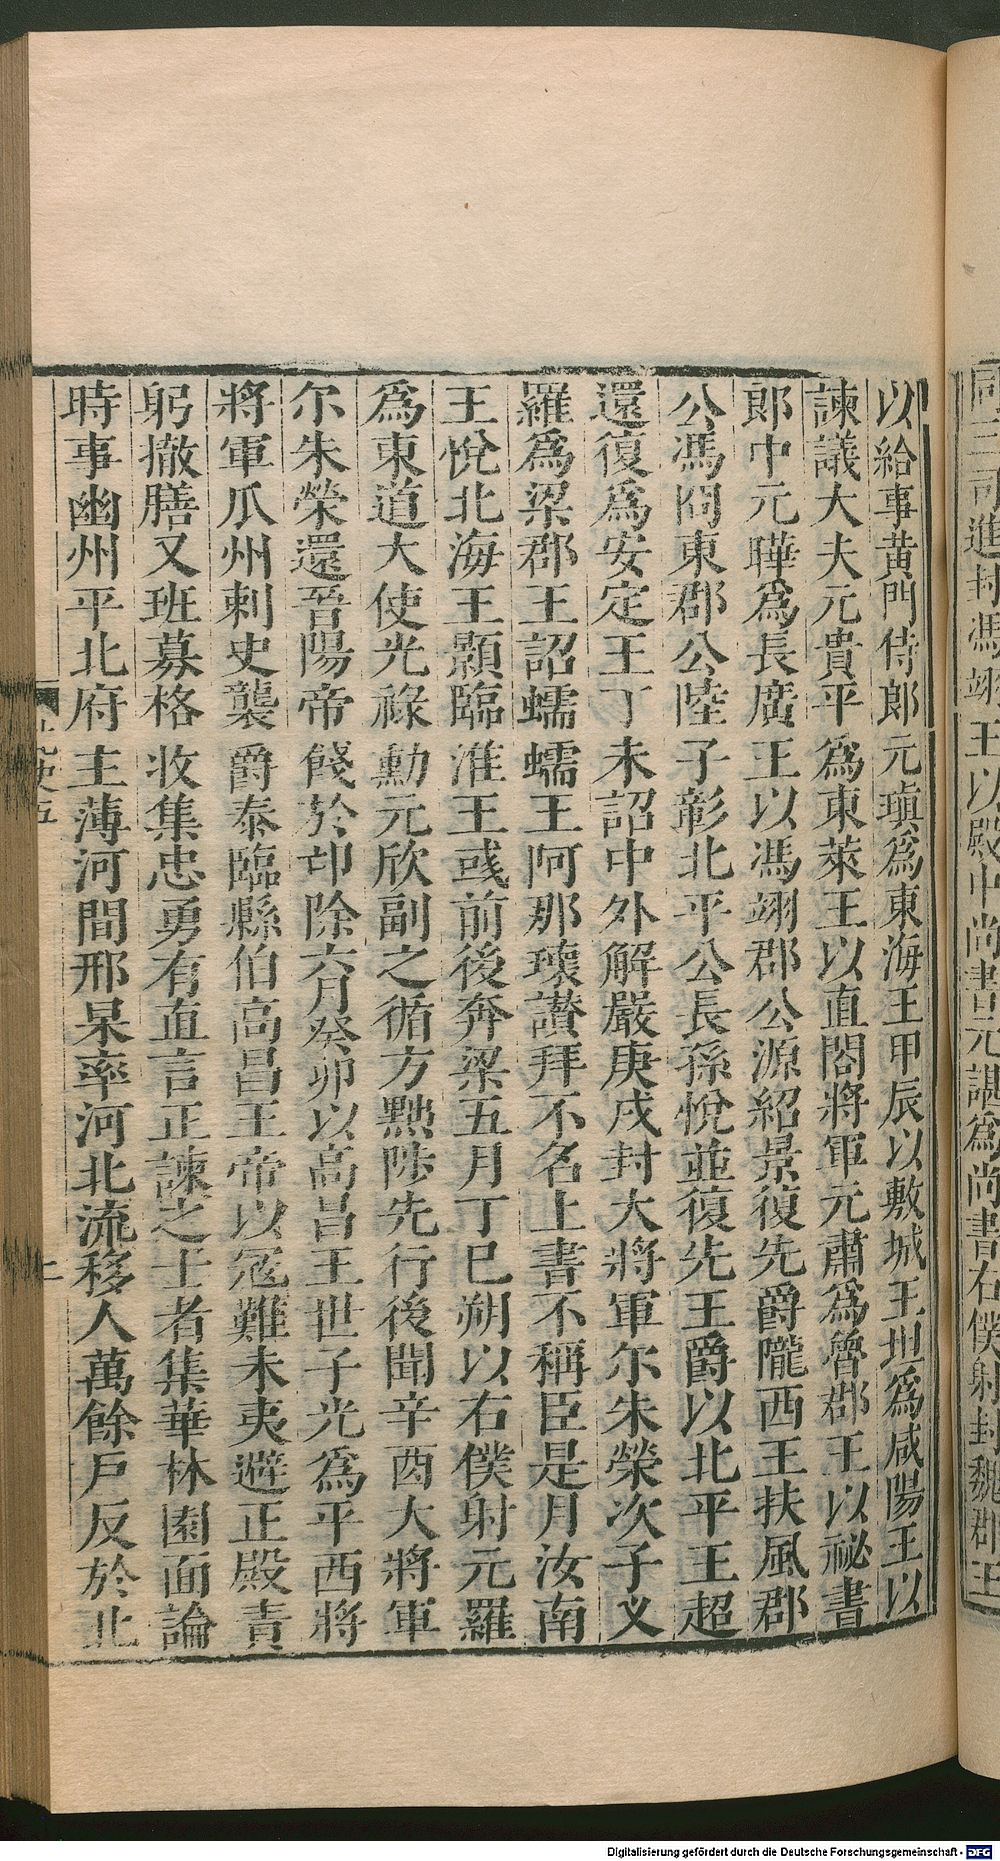 國三司進封馮翊王以殿中尚書元諶爲尚書右僕射封魏郡王
以給事黃門侍郎元瑱爲東海王甲辰以敷城王坦爲咸陽王以
諫議大夫元貴平爲東萊王以直閤將軍元肅爲魯郡王以祕書
郎中元曄爲長廣王以馮翊郡公源紹景復先爵隴西王扶風郡
公馮冏東郡公陸子彰北平公長孫悅並復先王爵以北平王超
還復爲安定王丁未詔中外解嚴庚戌封大將軍尒朱榮次子义
羅爲梁郡王詔蠕蠕王阿那瓌讃拜不名上書不稱臣是月汝南
王悅北海王顥臨淮王彧前後奔梁五月丁巳朔以右僕射元羅
爲東道大使光祿勳元欣副之循方黜陟先行後聞辛酉大將軍
尒朱榮還晉陽帝餞於邙除六月癸卯以高昌王世子光爲平西將
將軍瓜州刺史襲爵泰臨縣伯高昌王帝以冦難未夷避正殿責
躬撤膳又班募格收集忠勇有直言正諫之士者集華林園面論
時事幽州平北府主薄河間邢杲率河北流移人萬餘戶反於北
北史五
Digitalisierung gefördert durch die Deutsche Forschungsgemeinschaft - DFG